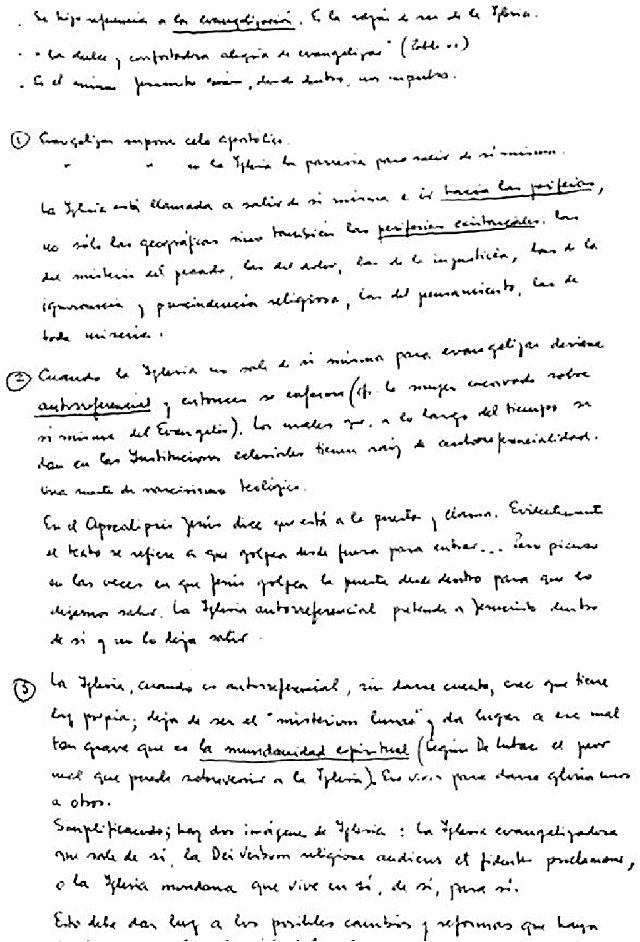 . Se hizo referencia a la evangelización. Es la razón de ser de la Iglesia.
. - "la dulce y confortadora alegría de evangelizar" (Pablo VI)
. Es el mismo Jesucristo quien, desde dentro, nos impulsa.
① Evangelizar supone celo apostólico.
" " en la Iglesia la parresía para salir de sí misma.
La Iglesia está llamada a salir de sí misma e ir hacia las periferias,
no sólo las geográficas sino también las periferias existenciales: las
del misterio del pecado, las del dolor, las de la injusticia, las de la
ignorancia y prescindencia religiosa, las del pensamiento, las de
toda miseria.
② Cuando la Iglesia no sale de sí misma para evangelizar deviene
autorreferencial y entonces se enferma (cf. la mujer encorvada sobre
sí misma del Evangelio). Los males que, a lo largo del tiempo se
dan en las Instituciones eclesiales tienen raíz de autorreferencialidad.
Una suerte de narcisismo teológico.
En el Apocalipsis Jesús dice que está a la puerta y llama. Evidentemente
el texto se refiere a que golpea desde fuera para entrar... Pero pienso
en las veces en que Jesús golpea la puerta desde dentro para que lo
dejemos salir. La Iglesia autorreferencial pretende a Jesucristo dentro
de sí y no lo deja salir.
③ La Iglesia, cuando es autorreferencial, sin darse cuenta, cree que tiene
luz propia; deja de ser el "mysterium lunae" y da lugar a ese mal
tan grave que es la mundanidad espiritual (según De Lubac el peor
mal que puede sobrevenir a la Iglesia). Ese vivir para darse gloria unos
a otros.
Simplificando; hay dos imágenes de Iglesia: la Iglesia evangelizadora
que sale de sí, la Dei Verbum religiose audiens et fidenter proclamans,
o la Iglesia mundana que vive en sí, de sí, para sí.
Esto debe dar luz a los posibles cambios y reformas que haya